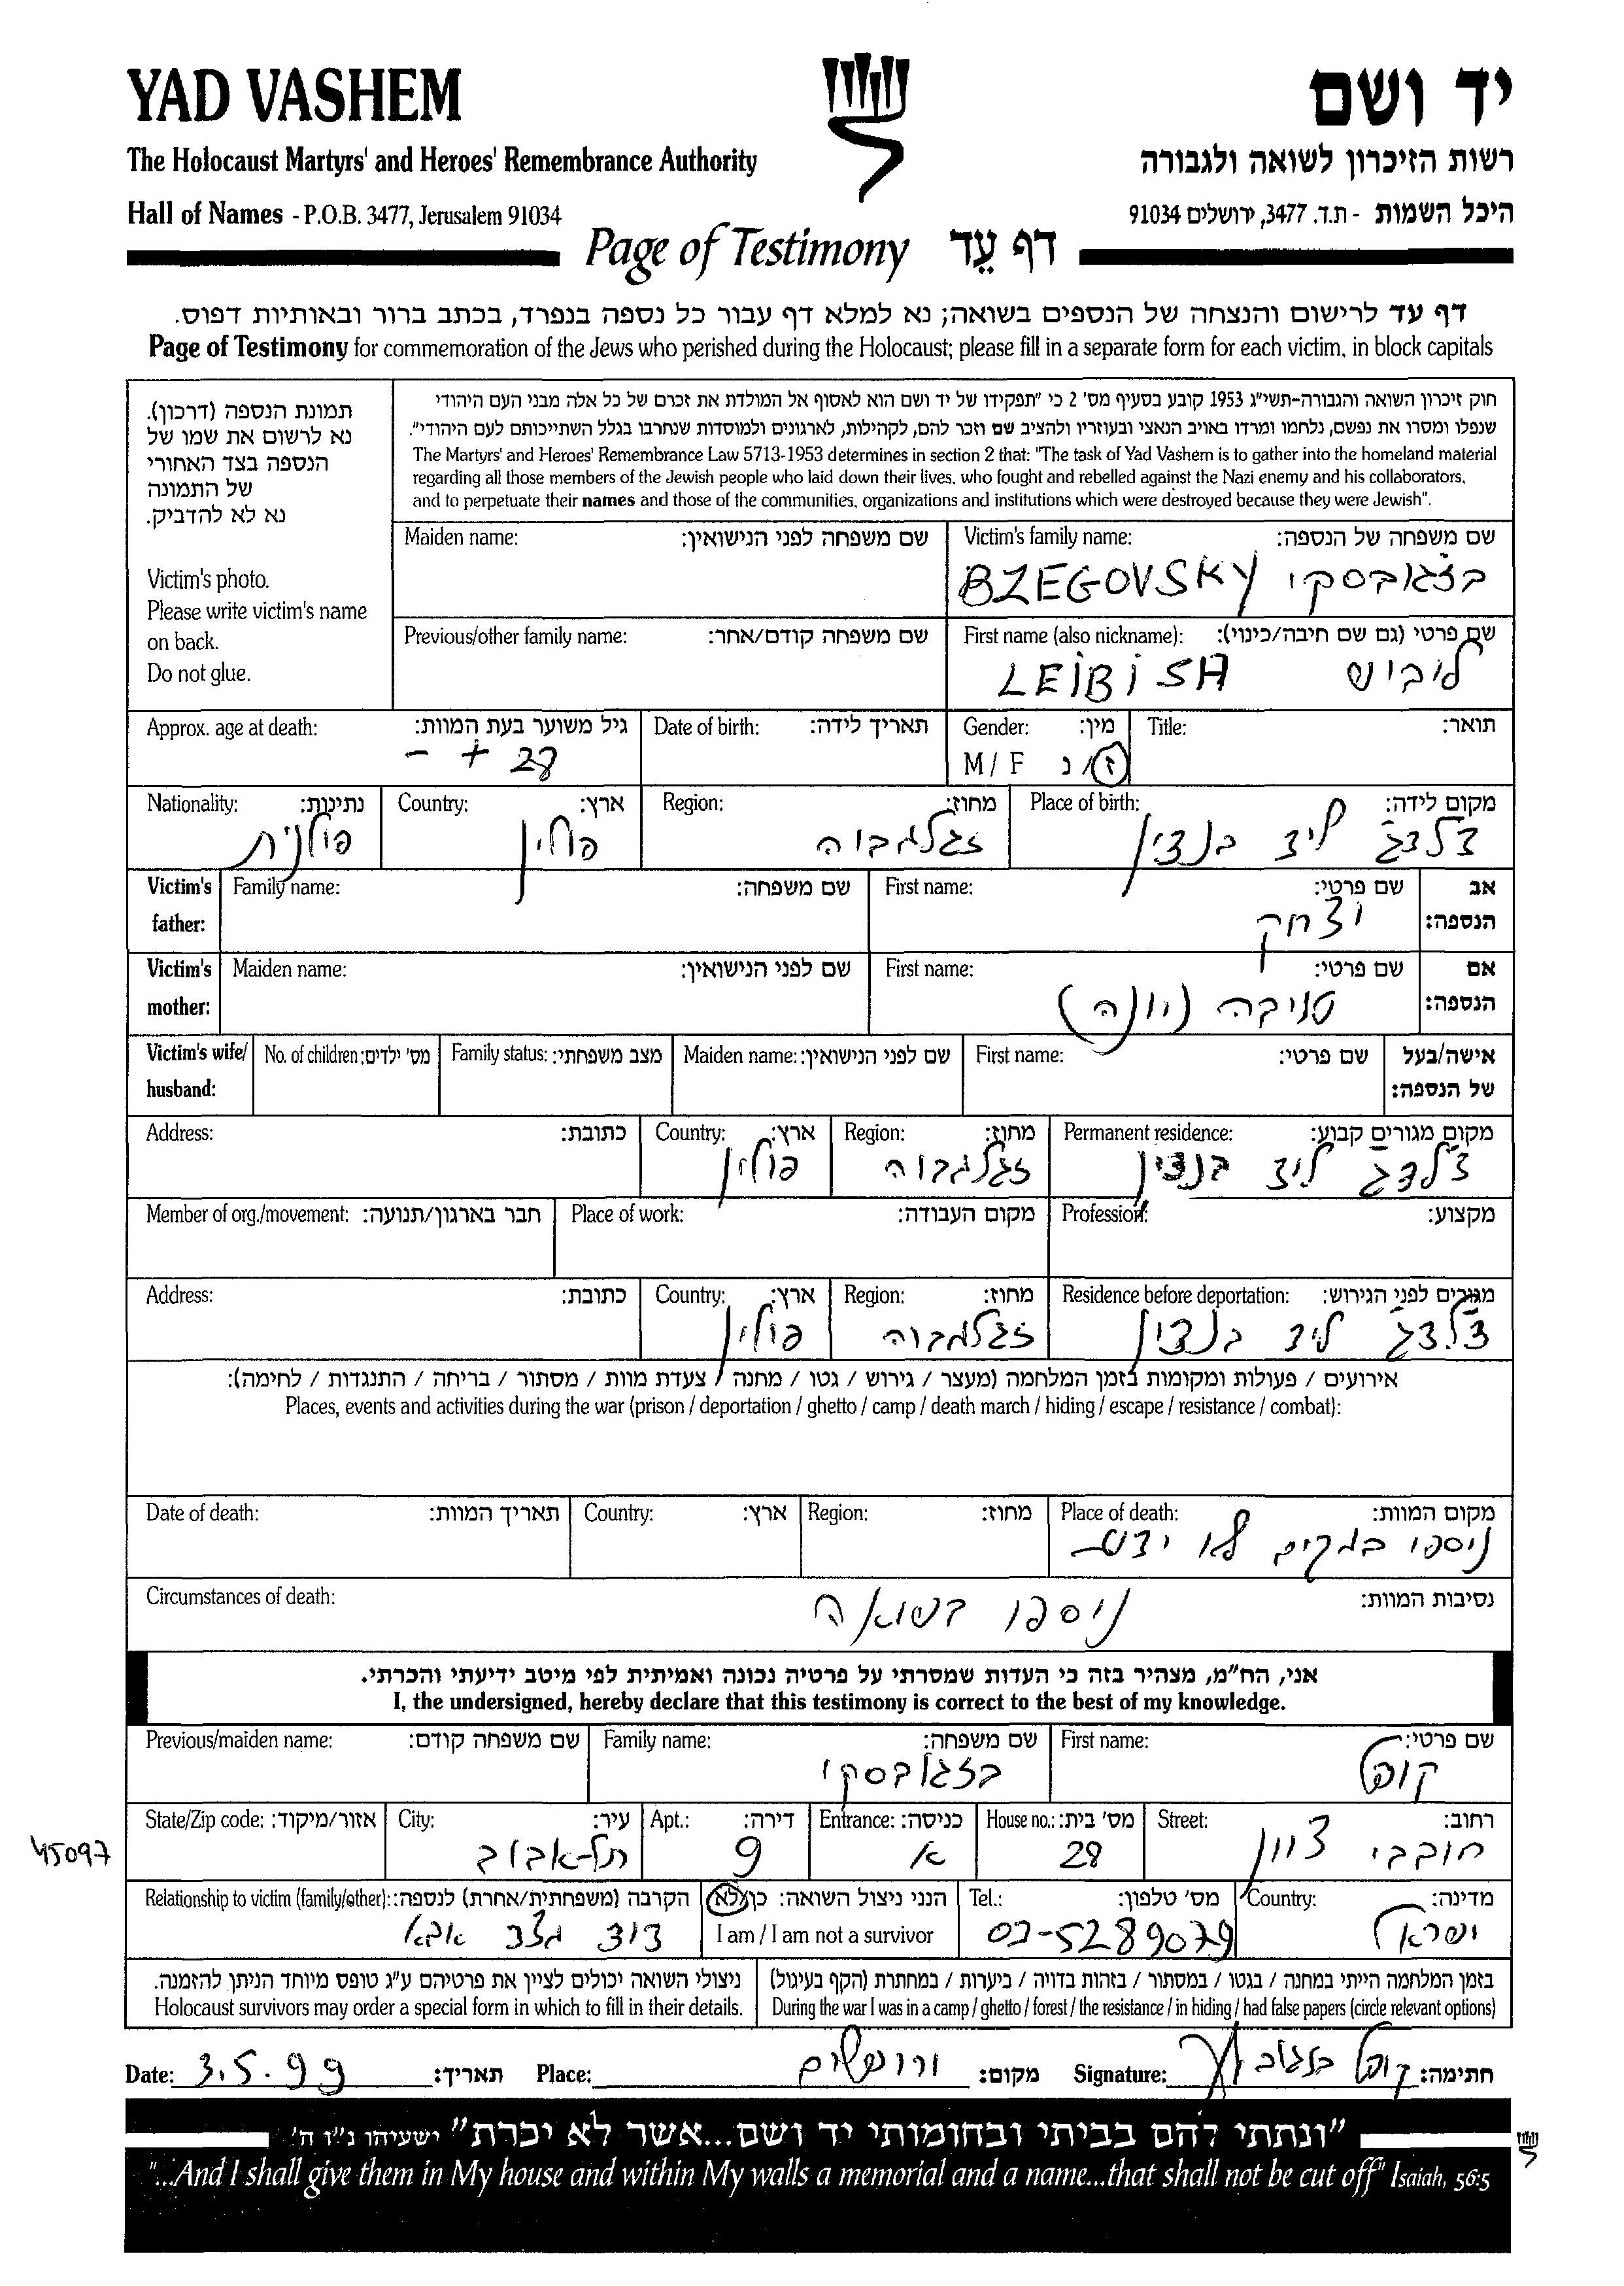 YAD VASHEM
יד ושם
The Holocaust Martyrs' and Heroes' Remembrance Authority
רשות הזיכרון לשואה ולגבורה
Hall of Names - P.O.B. 3477, Jerusalem 91034
היכל השמות - ת.ד. 3477, ירושלים 91034
Page of Testimony דף עֵד
דף עד לרישום והנצחה של הנספים בשואה; נא למלא דף עבור כל נספה בנפרד, בכתב ברור ובאותיות דפוס.
Page of Testimony for commemoration of the Jews who perished during the Holocaust; please fill in a separate form for each victim, in block capitals
תמונת הנספה (דרכון).
נא לרשום את שמו של
הנספה בצד האחורי
של התמונה
נא לא להדביק.
Victim's photo.
Please write victim's name
on back.
Do not glue.
חוק זיכרון השואה והגבורה-תשי"ג 1953 קובע בסעיף מס' 2 כי "תפקידו של יד ושם הוא לאסוף אל המולדת את זכרם של כל אלה מבני העם היהודי
שנפלו ומסרו את נפשם, נלחמו ומרדו באויב הנאצי ובעוזריו ולהציב שם וזכר להם, לקהילות, לארגונים ולמוסדות שנחרבו בגלל השתייכותם לעם היהודי".
The Martyrs' and Heroes' Remembrance Law 5713-1953 determines in section 2 that: "The task of Yad Vashem is to gather into the homeland material
regarding all those members of the Jewish people who laid down their lives, who fought and rebelled against the Nazi enemy and his collaborators,
and to perpetuate their names and those of the communities, organizations and institutions which were destroyed because they were Jewish".
Maiden name: שם משפחה לפני הנישואין:
Victim's family name: שם משפחה של הנספה:
BZEGOVSKY בזגובסקי
Previous/other family name: שם משפחה קודם/אחר:
First name (also nickname): שם פרטי (גם שם חיבה/כינוי):
LEIBISH ליביש
Approx. age at death: גיל משוער בעת המוות:
28 + -
Date of birth: תאריך לידה:
Gender: מין:
M / F ז/נ
Title: תואר:
Nationality: נתינות:
פולנית
Country: ארץ:
פולין
Region: מחוז:
זגלמבוה
Place of birth: מקום לידה:
ליד בנדין
Victim's father: Family name: שם משפחה:
First name: שם פרטי: אב הנספה:
יצחק
Victim's mother: Maiden name: שם לפני הנישואין:
First name: שם פרטי: אם הנספה:
טויבה (יונה)
Victim's wife/husband: No. of children: מס' ילדים: Family status: מצב משפחתי: Maiden name: שם לפני הנישואין: First name: שם פרטי: אישה/בעל של הנספה:
Address: כתובת:
Country: ארץ:
פולין
Region: מחוז:
זגלמבוה
Permanent residence: מקום מגורים קבוע:
ליד בנדין
Member of org./movement: חבר בארגון/תנועה: Place of work: מקום העבודה: Profession: מקצוע:
Address: כתובת:
Country: ארץ:
פולין
Region: מחוז:
זגלמבוה
Residence before deportation: מגורים לפני הגירוש:
ליד בנדין
אירועים / פעולות ומקומות בזמן המלחמה (מעצר / גירוש / גטו / מחנה / צעדת מוות / מסתור / בריחה / התנגדות / לחימה):
Places, events and activities during the war (prison / deportation / ghetto / camp / death march / hiding / escape / resistance / combat):
Date of death: תאריך המוות: Country: ארץ: Region: מחוז: Place of death: מקום המוות:
ניספו במקום לא ידוע
Circumstances of death: נסיבות המוות:
ניספו בשואה
אני, הח"מ, מצהיר בזה כי העדות שמסרתי על פרטיה נכונה ואמיתית לפי מיטב ידיעתי והכרתי.
I, the undersigned, hereby declare that this testimony is correct to the best of my knowledge.
Previous/maiden name: שם משפחה קודם:
Family name: שם משפחה:
בזגובסקי
First name: שם פרטי:
קופל
State/Zip code: אזור/מיקוד:
45097
City: עיר:
תל-אביב
Apt.: דירה:
9
Entrance: כניסה:
א
House no.: מס' בית:
28
Street: רחוב:
חובבי ציון
Relationship to victim (family/other): הקרבה (משפחתית/אחרת) לנספה:
דוד מצד אבא
הנני ניצול השואה: כן/לא
I am / I am not a survivor
Tel.: מס' טלפון:
03-5289079
Country: מדינה:
ישראל
ניצולי השואה יכולים לציין את פרטיהם ע"ג טופס מיוחד הניתן להזמנה.
Holocaust survivors may order a special form in which to fill in their details.
בזמן המלחמה הייתי במחנה / בגטו / במסתור / בזהות בדויה / ביערות / במחתרת (הקף בעיגול)
During the war I was in a camp / ghetto / forest / the resistance / in hiding / had false papers (circle relevant options)
Date: 3.5.99 תאריך: Place: ירושלים מקום: Signature: קופל חתימה:
"ונתתי להם בביתי ובחומותי יד ושם...אשר לא יכרת" ישעיהו נ"ו ה'
"...And I shall give them in My house and within My walls a memorial and a name...that shall not be cut off" Isaiah, 56:5